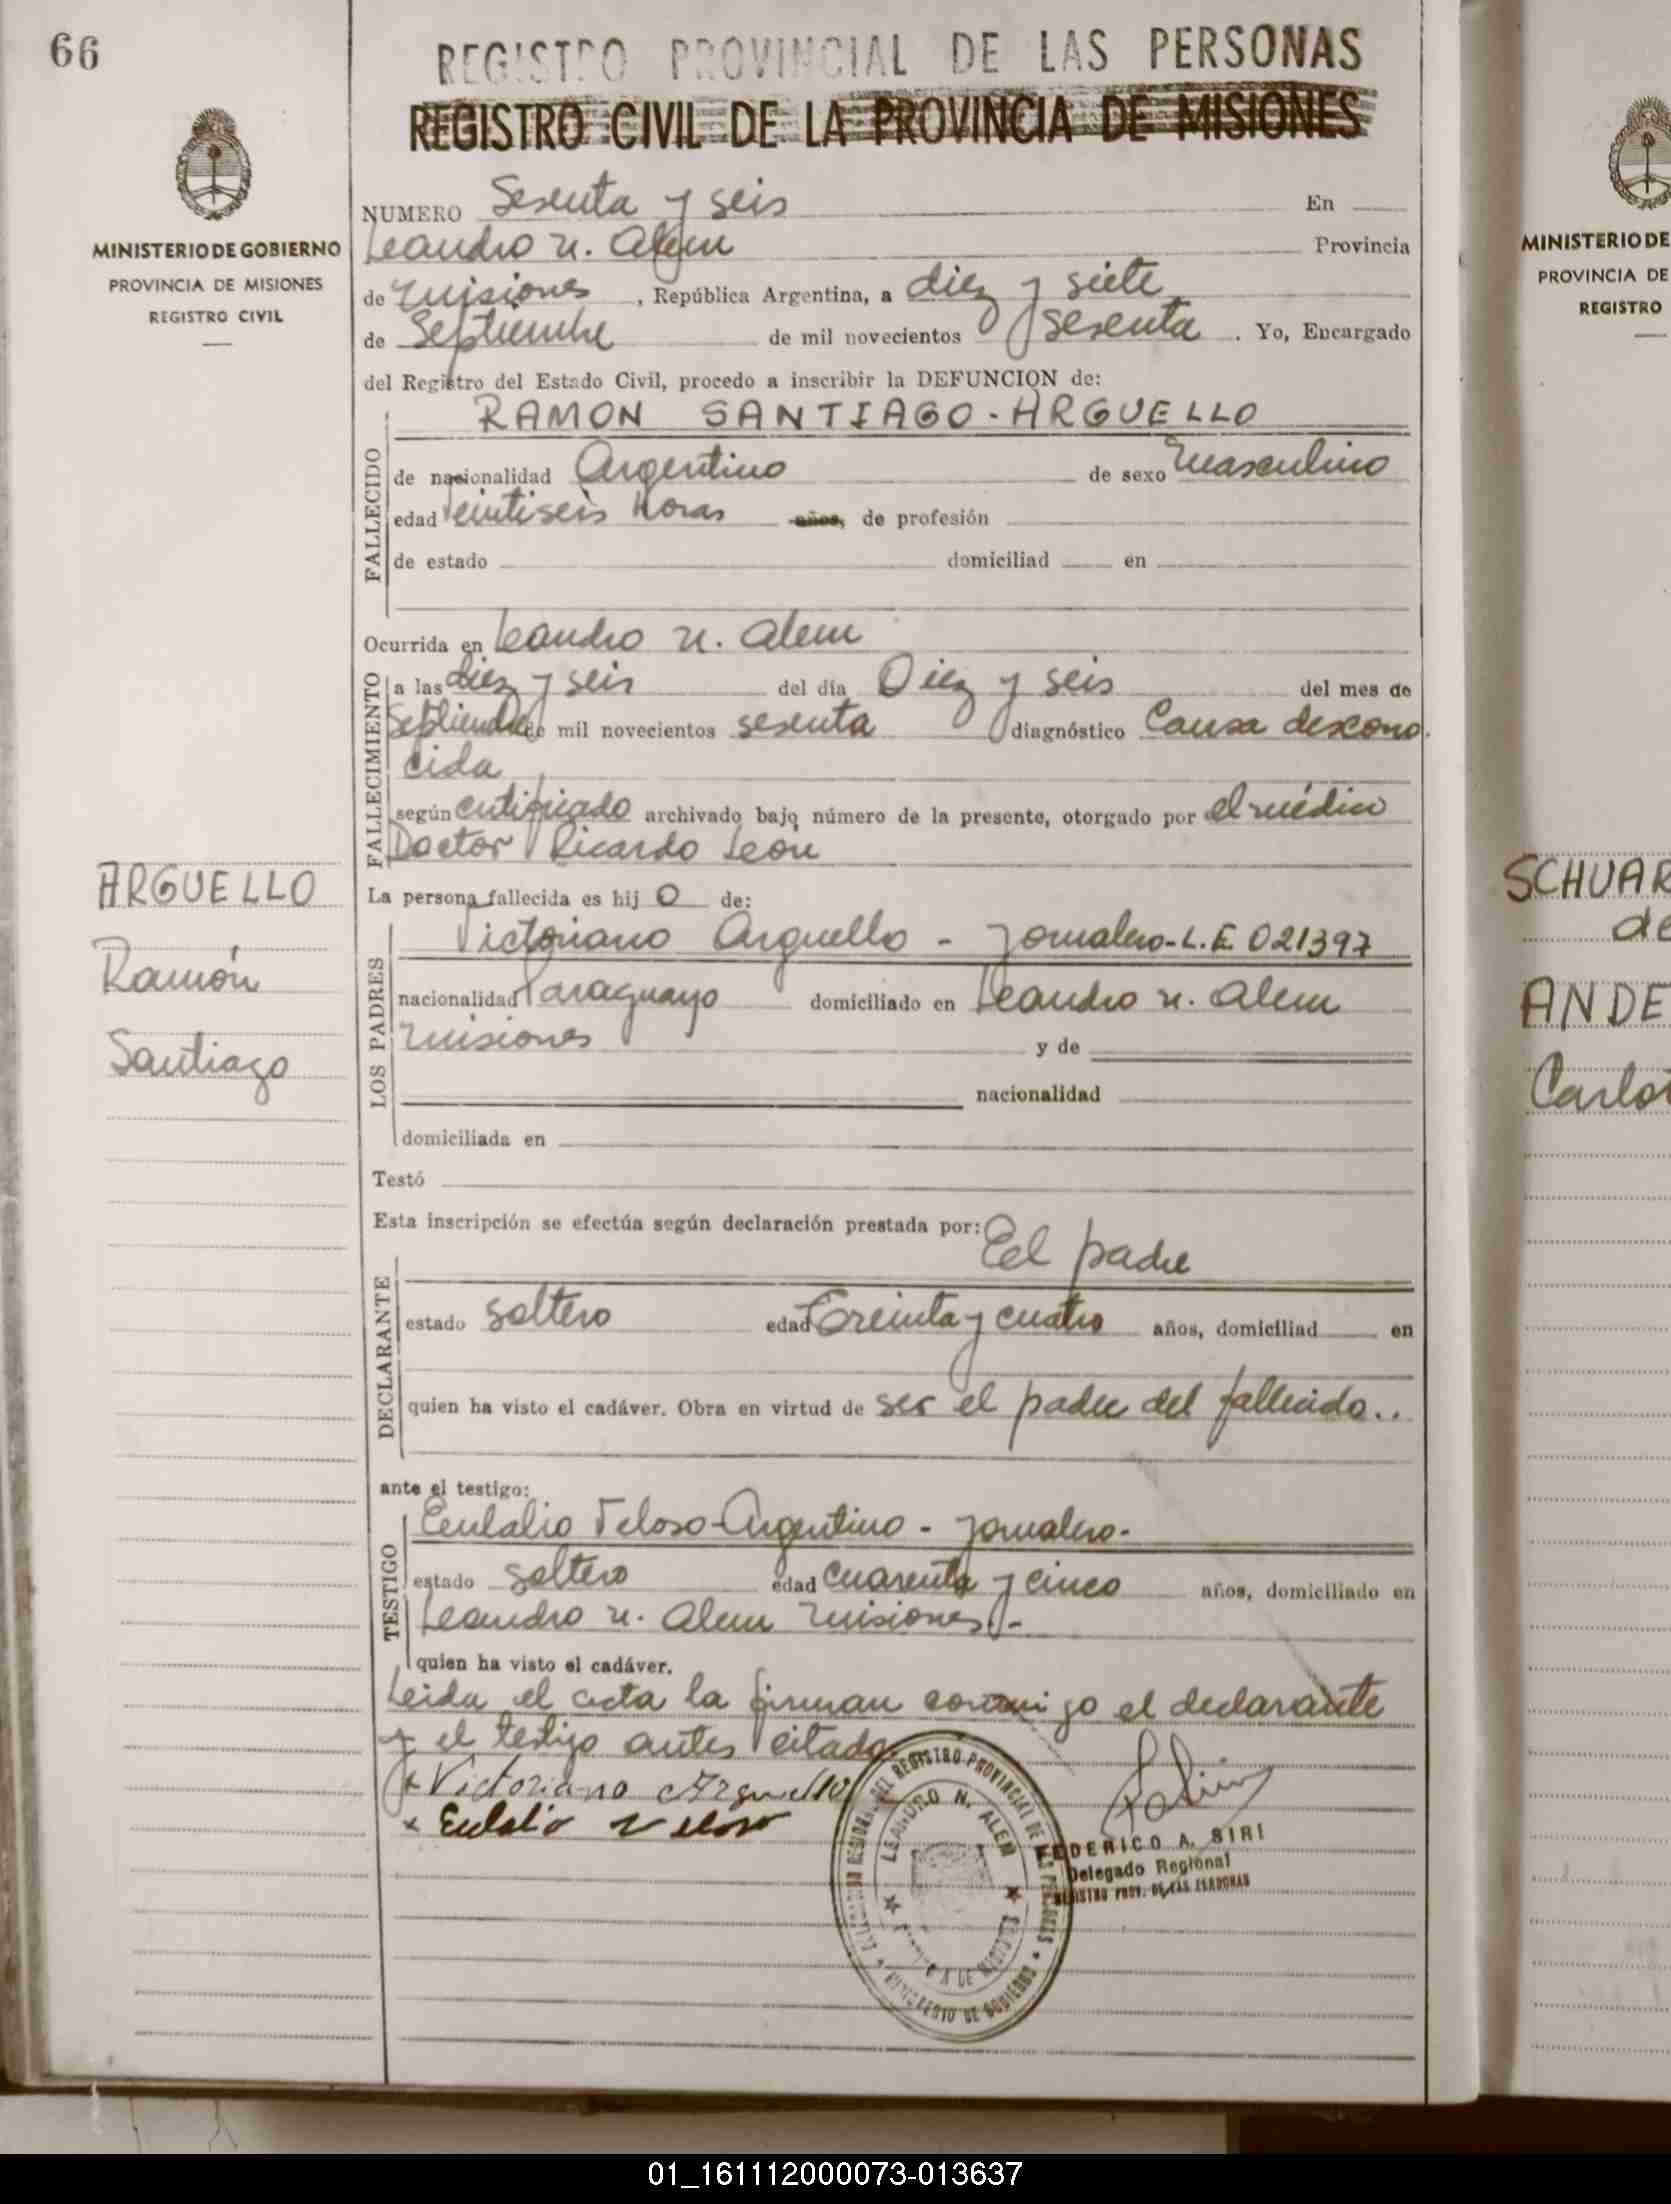 66
REGISTRO PROVINCIAL DE LAS PERSONAS
REGISTRO CIVIL DE LA PROVINCIA DE MISIONES
MINISTERIO DE GOBIERNO
PROVINCIA DE MISIONES
REGISTRO CIVIL
NUMERO Sesenta y seis En
Leandro N. Alem Provincia
de Misiones, República Argentina, a diez y siete
de Septiembre de mil novecientos sesenta. Yo, Encargado
del Registro del Estado Civil, procedo a inscribir la DEFUNCION de:
RAMON SANTIAGO-ARGUELLO
FALLECIDO
de nacionalidad Argentino de sexo Masculino
edad Veintiseis Horas años, de profesión
de estado domiciliad en
Ocurrida en Leandro N. Alem
FALLECIMIENTO
a las diez y seis del día Diez y seis del mes de
Septiembre de mil novecientos sesenta diagnóstico Causa descono
cida
según certificado archivado bajo número de la presente, otorgado por el médico
Doctor Ricardo Leon
ARGUELLO
Ramón
Santiago
La persona fallecida es hij o de:
LOS PADRES
Victoriano Arguello - Jornalero-L.E 021397
nacionalidad Paraguayo domiciliado en Leandro N. Alem
Misiones y de
nacionalidad
domiciliada en
Testó
Esta inscripción se efectúa según declaración prestada por: El padre
DECLARANTE
estado soltero edad Treinta y cuatro años, domiciliad en
quien ha visto el cadáver. Obra en virtud de ser el padre del fallecido..
ante el testigo:
TESTIGO
Eulalio Veloso-Argentino - Jornalero-
estado soltero edad cuarenta y cinco años, domiciliado en
Leandro N. Alem Misiones.-
quien ha visto el cadáver.
Leida el acta la firman conmigo el declarante
y el testigo antes citado
x Victoriano Arguello
x Eulalio Veloso
DEL REGISTRO PROVINCIAL DE LAS PERSONAS
LEANDRO N. ALEM
MINISTERIO DE GOBIERNO
FEDERICO A. SIRI
Delegado Regional
REGISTRO PROV. DE LAS PERSONAS
MINISTERIO DE
PROVINCIA DE
REGISTRO
SCHUAR
de
ANDE
Carlos
01_161112000073-013637